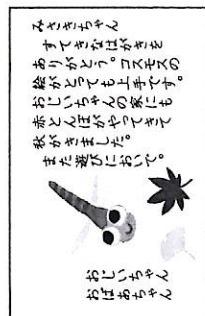 みさきちゃん
すてきなはがきを
ありがとう。コスモスの
絵がとっても上手です。
おじいちゃんの家にも
赤とんぼがやってきて
秋がきました。
また遊びにおいで。
おじいちゃん
おばあちゃん